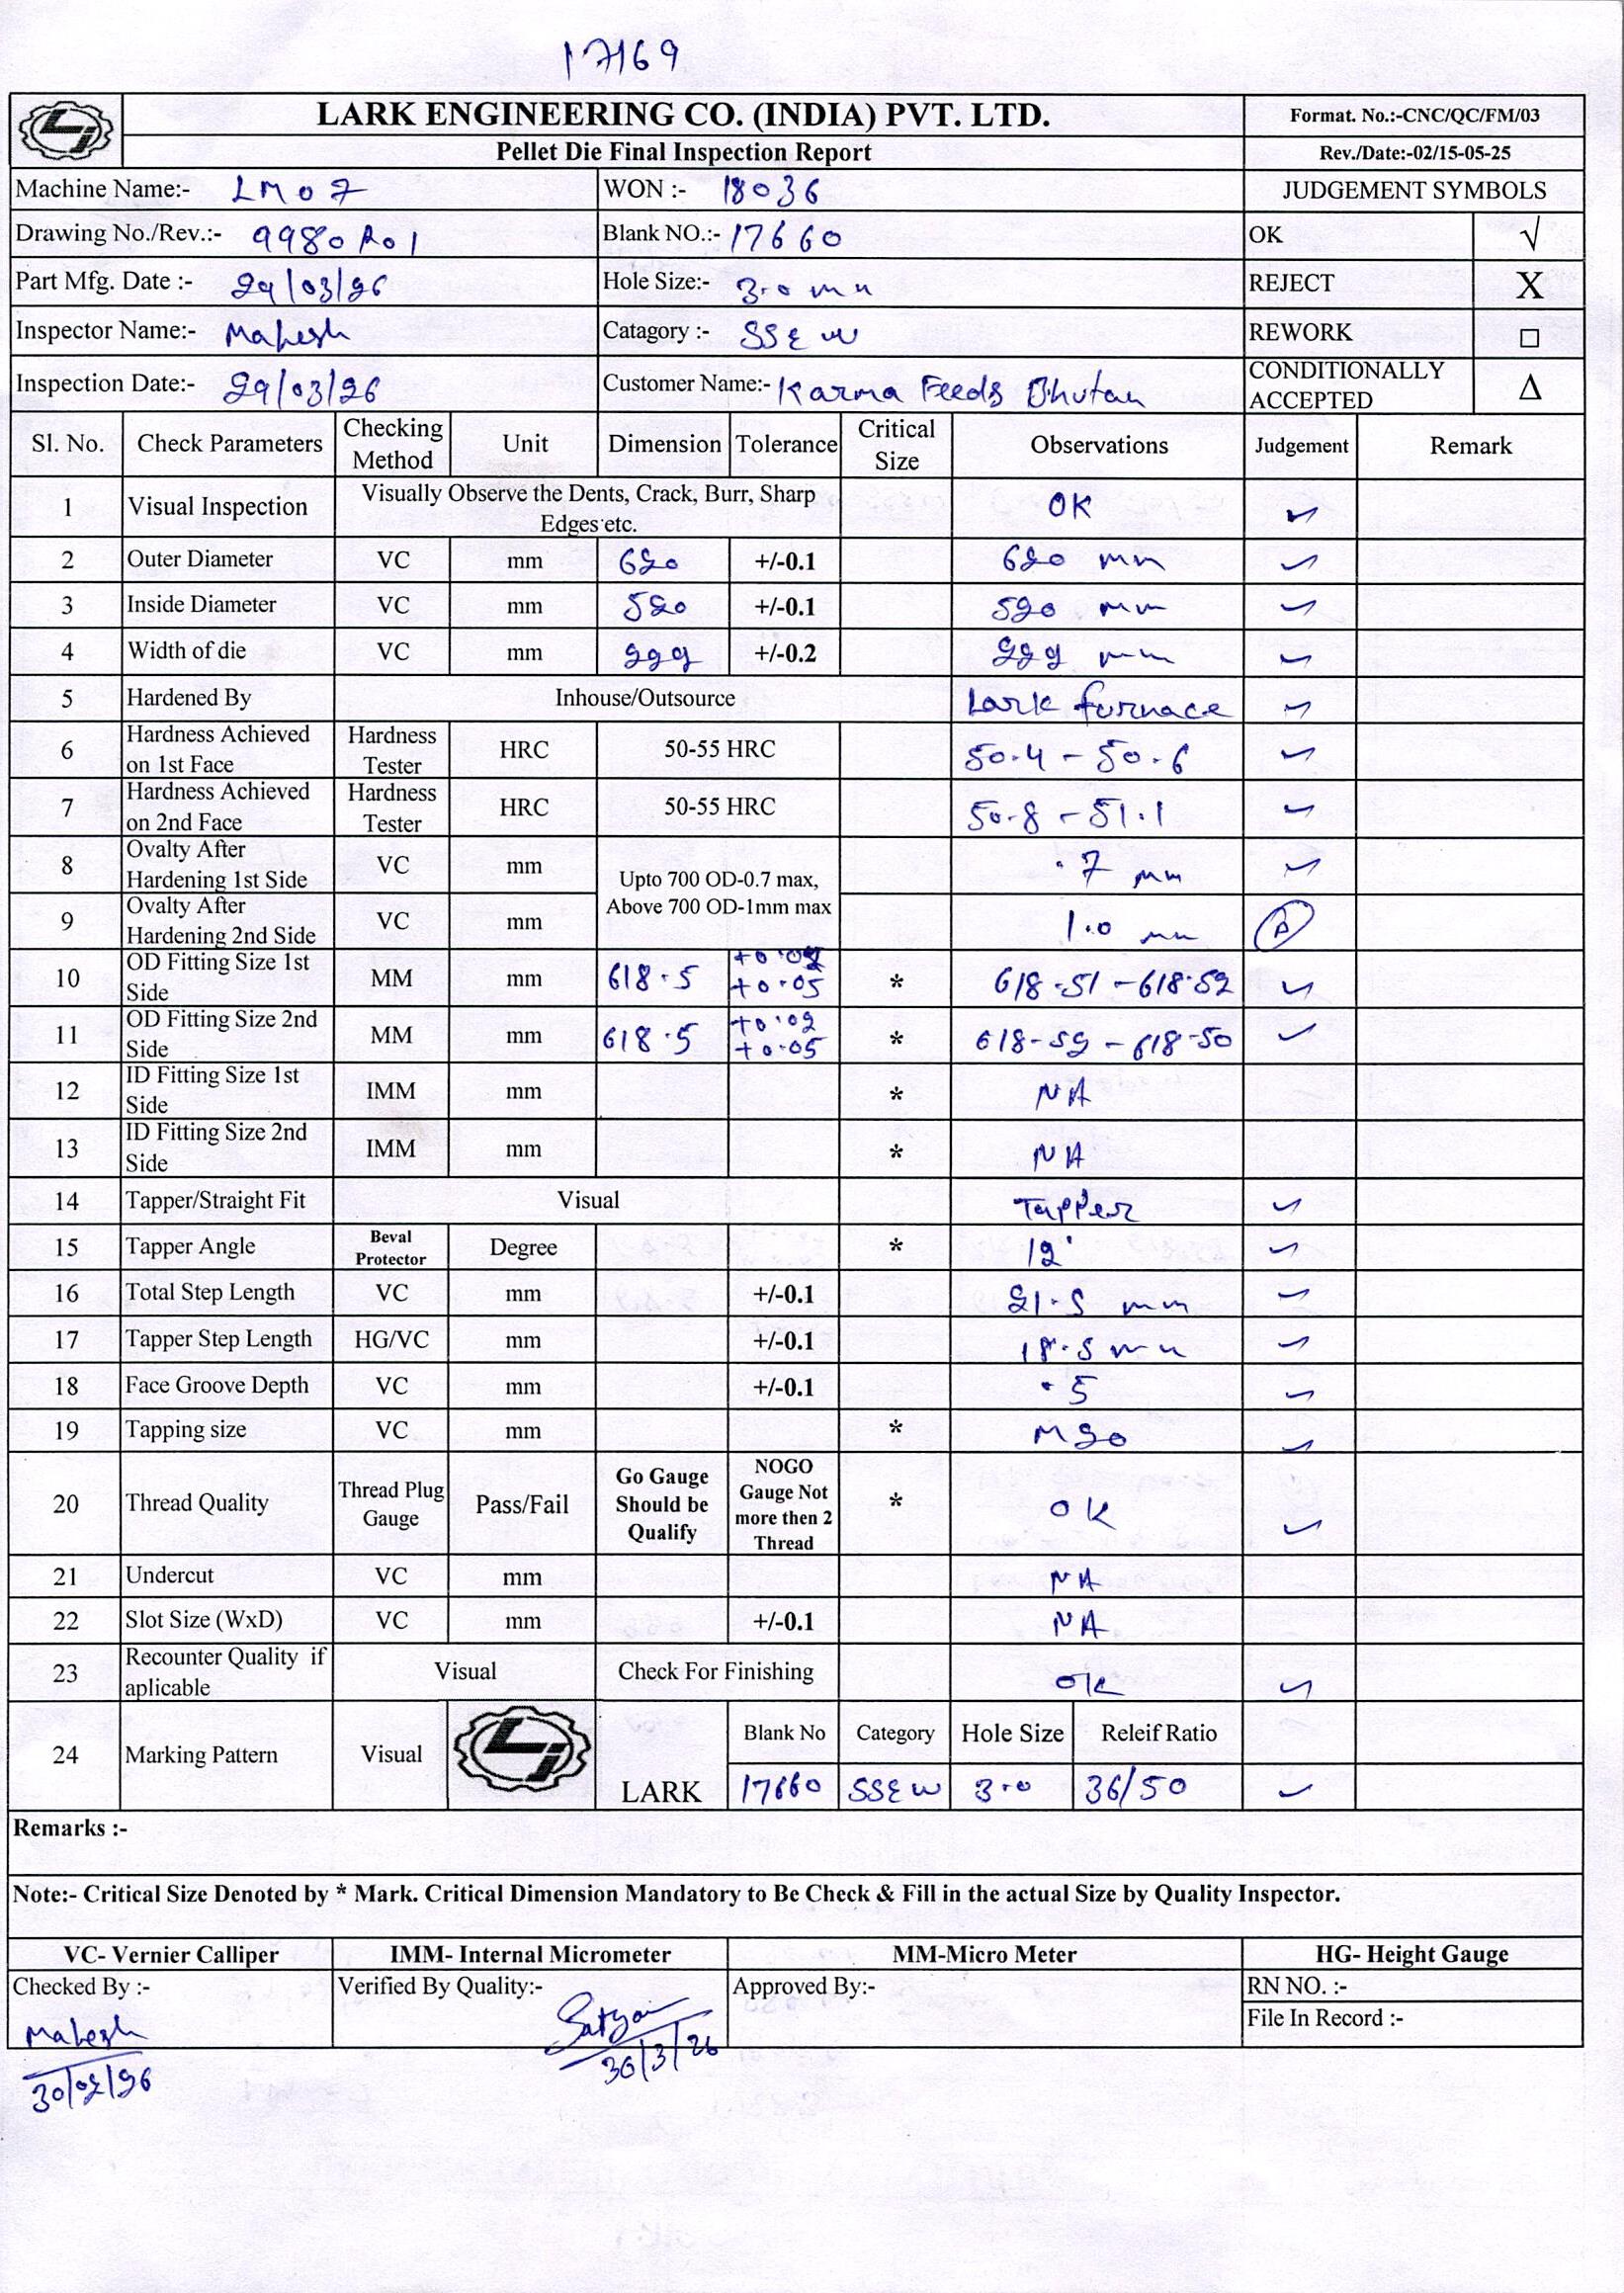 17169
LARK ENGINEERING CO. (INDIA) PVT. LTD. Format. No.:-CNC/QC/FM/03
Pellet Die Final Inspection Report Rev./Date:-02/15-05-25
Machine Name:- LM07 WON :- 18036 JUDGEMENT SYMBOLS
Drawing No./Rev.:- 9980R01 Blank NO.:- 17660 OK √
Part Mfg. Date :- 29/03/26 Hole Size:- 3.0 mm REJECT X
Inspector Name:- Mahesh Catagory :- SSEW REWORK □
Inspection Date:- 29/03/26 Customer Name:- Karma Feeds Bhutan CONDITIONALLY ACCEPTED Δ
Sl. No. Check Parameters Checking Method Unit Dimension Tolerance Critical Size Observations Judgement Remark
1 Visual Inspection Visually Observe the Dents, Crack, Burr, Sharp Edges etc. OK ✓
2 Outer Diameter VC mm 620 +/-0.1 620 mm ✓
3 Inside Diameter VC mm 520 +/-0.1 520 mm ✓
4 Width of die VC mm 222 +/-0.2 222 mm ✓
5 Hardened By Inhouse/Outsource Lark furnace ✓
6 Hardness Achieved on 1st Face Hardness Tester HRC 50-55 HRC 50.4 - 50.6 ✓
7 Hardness Achieved on 2nd Face Hardness Tester HRC 50-55 HRC 50.8 - 51.1 ✓
8 Ovalty After Hardening 1st Side VC mm Upto 700 OD-0.7 max, Above 700 OD-1mm max .7 mm ✓
9 Ovalty After Hardening 2nd Side VC mm 1.0 mm
10 OD Fitting Size 1st Side MM mm 618.5 +0.02 +0.05 * 618.51 - 618.52 ✓
11 OD Fitting Size 2nd Side MM mm 618.5 +0.02 +0.05 * 618-52 - 618-50 ✓
12 ID Fitting Size 1st Side IMM mm * NA
13 ID Fitting Size 2nd Side IMM mm * NA
14 Tapper/Straight Fit Visual Tapper ✓
15 Tapper Angle Beval Protector Degree * 12° ✓
16 Total Step Length VC mm +/-0.1 21.5 mm ✓
17 Tapper Step Length HG/VC mm +/-0.1 18.5 mm ✓
18 Face Groove Depth VC mm +/-0.1 .5 ✓
19 Tapping size VC mm * M20 ✓
20 Thread Quality Thread Plug Gauge Pass/Fail Go Gauge Should be Qualify NOGO Gauge Not more then 2 Thread * OK ✓
21 Undercut VC mm NA
22 Slot Size (WxD) VC mm +/-0.1 NA
23 Recounter Quality if aplicable Visual Check For Finishing OK ✓
24 Marking Pattern Visual LARK Blank No Category Hole Size Releif Ratio
17660 SSEW 3.0 36/50 ✓
Remarks :-
Note:- Critical Size Denoted by * Mark. Critical Dimension Mandatory to Be Check & Fill in the actual Size by Quality Inspector.
VC- Vernier Calliper IMM- Internal Micrometer MM-Micro Meter HG- Height Gauge
Checked By :- Verified By Quality:- Approved By:- RN NO. :-
File In Record :-
Mahesh Satyam
30/3/26